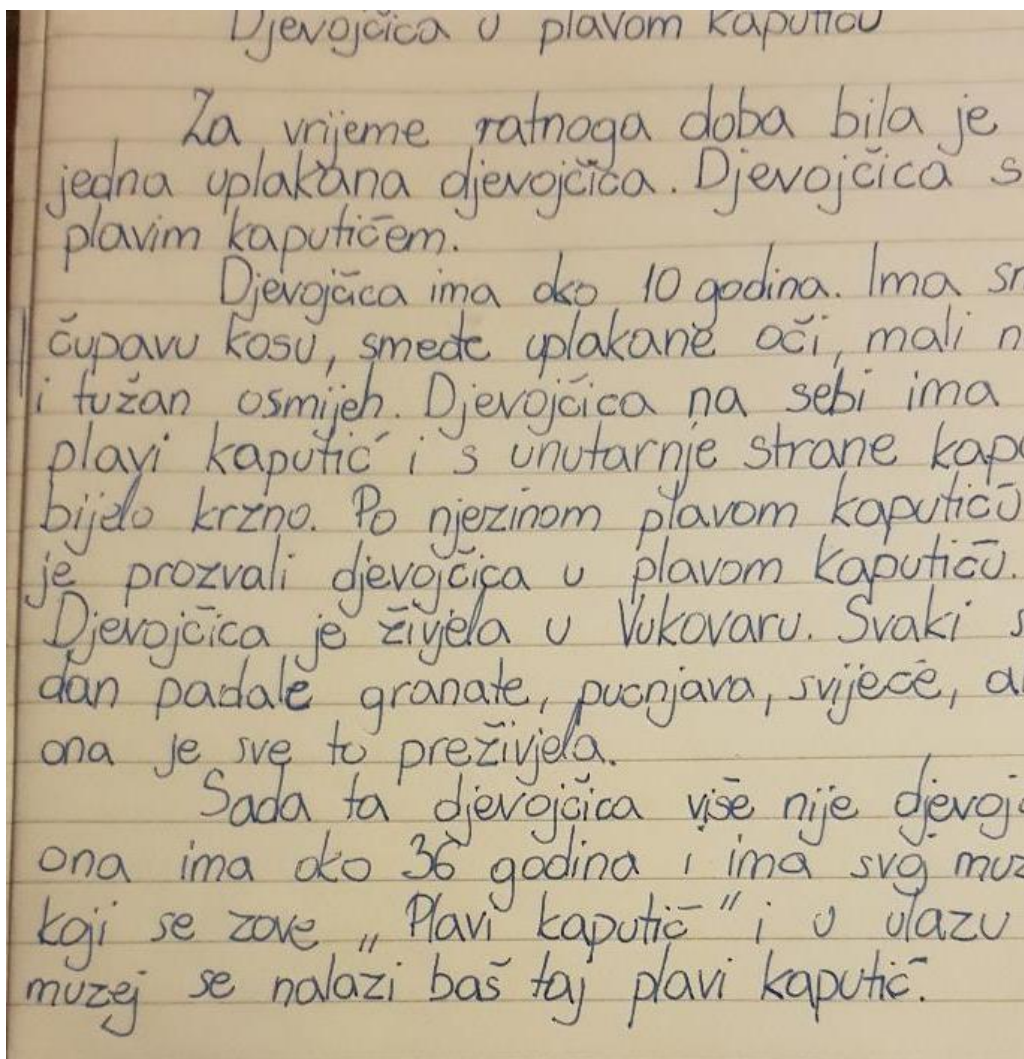 Djevojčica u plavom kaputiću
Za vrijeme ratnoga doba bila je
jedna uplakana djevojčica. Djevojčica s
plavim kaputićem.
Djevojčica ima oko 10 godina. Ima
čupavu kosu, smeđe uplakane oči, mali
i tužan osmijeh. Djevojčica na sebi ima
plavi kaputić i s unutarnje strane
bijelo krzno. Po njezinom plavom kaputiću
je prozvali djevojčica u plavom kaputiću.
Djevojčica je živjela u Vukovaru. Svaki
dan padale granate, pucnjava, svijeće,
ona je sve to preživjela.
Sada ta djevojčica više nije
ona ima oko 36 godina i ima svoj
koji se zove „Plavi kaputić" i u ulazu
muzej se nalazi baš taj plavi kaputić.